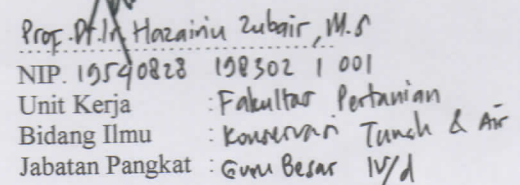 Prof. Dr. Ir. Hazairin Zubair, M.S
NIP. 19540828 198302 1 001
Unit Kerja : Fakultas Pertanian
Bidang Ilmu : Konservasi Tanah & Air
Jabatan Pangkat : Guru Besar IV/d